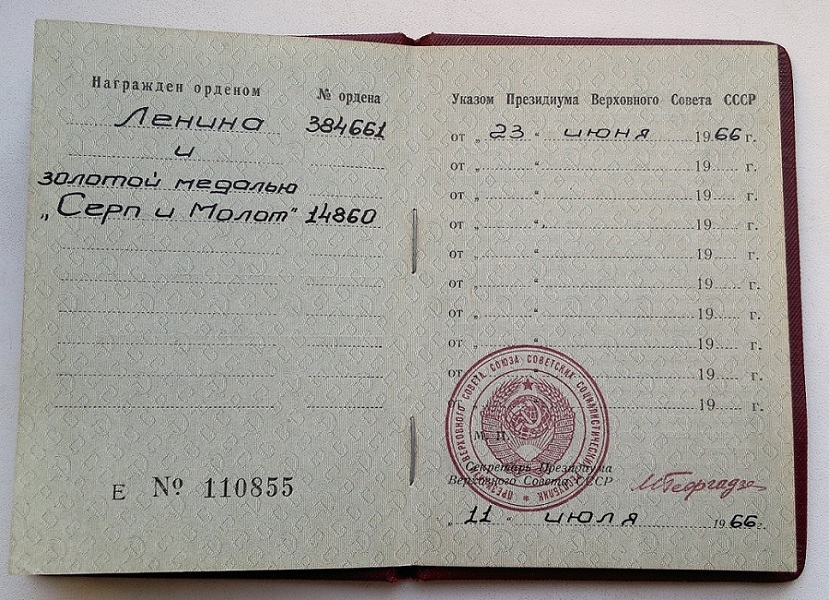 Награжден орденом
№ ордена
Ленина 384661
и
золотой медалью
„Серп и Молот" 14860
Е № 110855
Указом Президиума Верховного Совета СССР
от „ 23 “ июня 1966 г.
от „ “ 19 г.
от „ “ 19 г.
от „ “ 19 г.
от „ “ 19 г.
от „ “ 19 г.
от „ “ 19 г.
от „ “ 19 г.
от „ “ 19 г.
19 г.
ПРЕЗИДИУМ ВЕРХОВНОГО СОВЕТА СОЮЗА СОВЕТСКИХ СОЦИАЛИСТИЧЕСКИХ РЕСПУБЛИК
М. П.
Секретарь Президиума
Верховного Совета СССР
МГеоргадзе
„ 11 “ июля 1966 г.